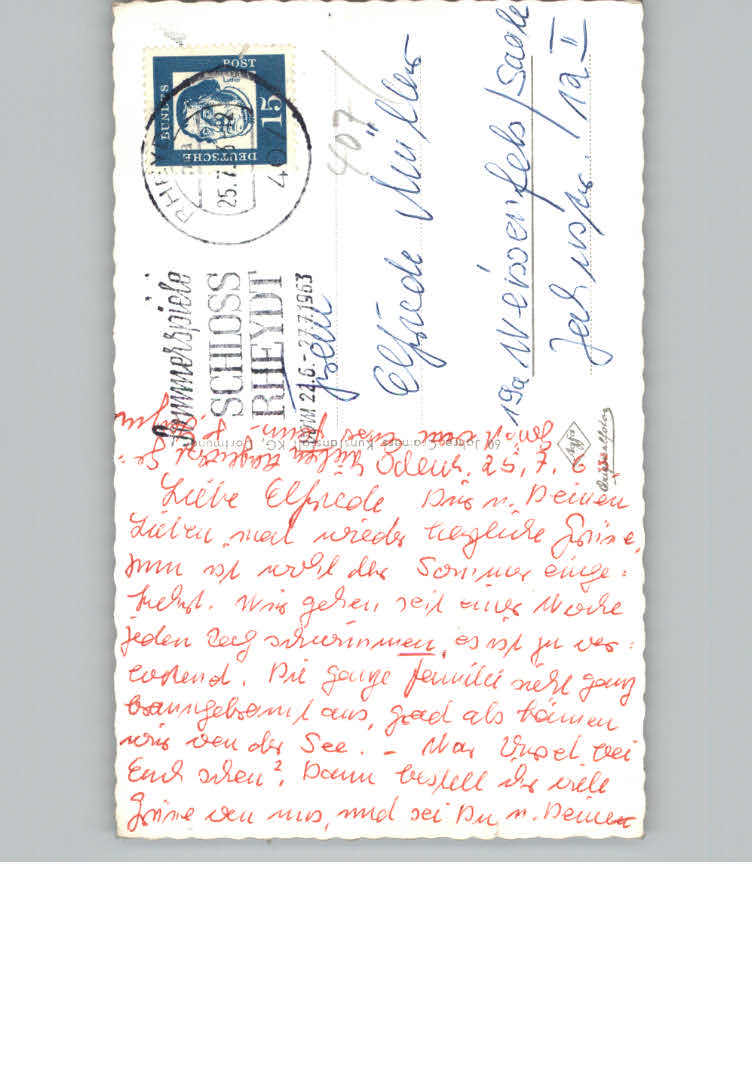 Odenk. 25.7.6
Liebe Elfriede Dir u. Deinen
Lieben mal wieder herzliche Grüsse,
nun ist wohl der Sommer einge=
kehrt. Wir gehen seit einer Woche
jeden Tag schwimmen, es ist zu ver=
lockend. Die ganze Familie sieht ganz
braungebrannt aus, grad als kämen
wir von der See. – War Ursel bei
Euch schon? Dann bestell ihr viele
Grüsse von uns, und sei Du u. Deinen
DEUTSCHE BUNDESPOST
15
Luther
RHEYDT
25.7.63
Sommerspiele
SCHLOSS
RHEYDT
VOM 22.6.-27.7.1963
407
Elfriede Müller
19a Weissenfels/Saale
Jahnstr. 12 II
Cramers Kunstanstalt KG, Dortmund
Agfa